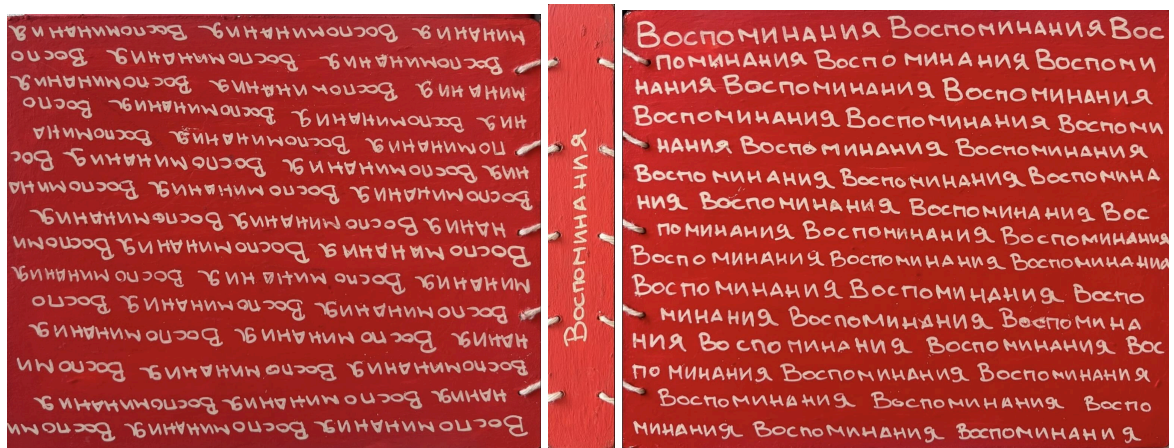 Воспоминания Воспоминания Воспоми
нания Воспоминания Воспоминания
Воспоминания Воспоминания Воспоми
нания Воспоминания Воспоминания
Воспоминания Воспоминания Воспо
минания Воспоминания Воспоминания
Воспоминания Воспоминания Воспоми
нания Воспоминания Воспоминания
Воспоминания Воспоминания Воспомина
ния Воспоминания Воспоминания Вос
поминания Воспоминания Воспомина
ния Воспоминания Воспоминания Воспо
минания Воспоминания Воспоминания
Воспоминания Воспоминания Воспо
минания Воспоминания Воспоминания
Воспоминания
Воспоминания Воспоминания Вос
поминания Воспоминания Воспоми
нания Воспоминания Воспоминания
Воспоминания Воспоминания Воспоми
нания Воспоминания Воспоминания
Воспоминания Воспоминания Воспомина
ния Воспоминания Воспоминания Вос
поминания Воспоминания Воспоминания
Воспоминания Воспоминания Воспоминания
Воспоминания Воспоминания Воспо
минания Воспоминания Воспомина
ния Воспоминания Воспоминания Вос
поминания Воспоминания Воспоминания
Воспоминания Воспоминания Воспо
минания Воспоминания Воспоминания